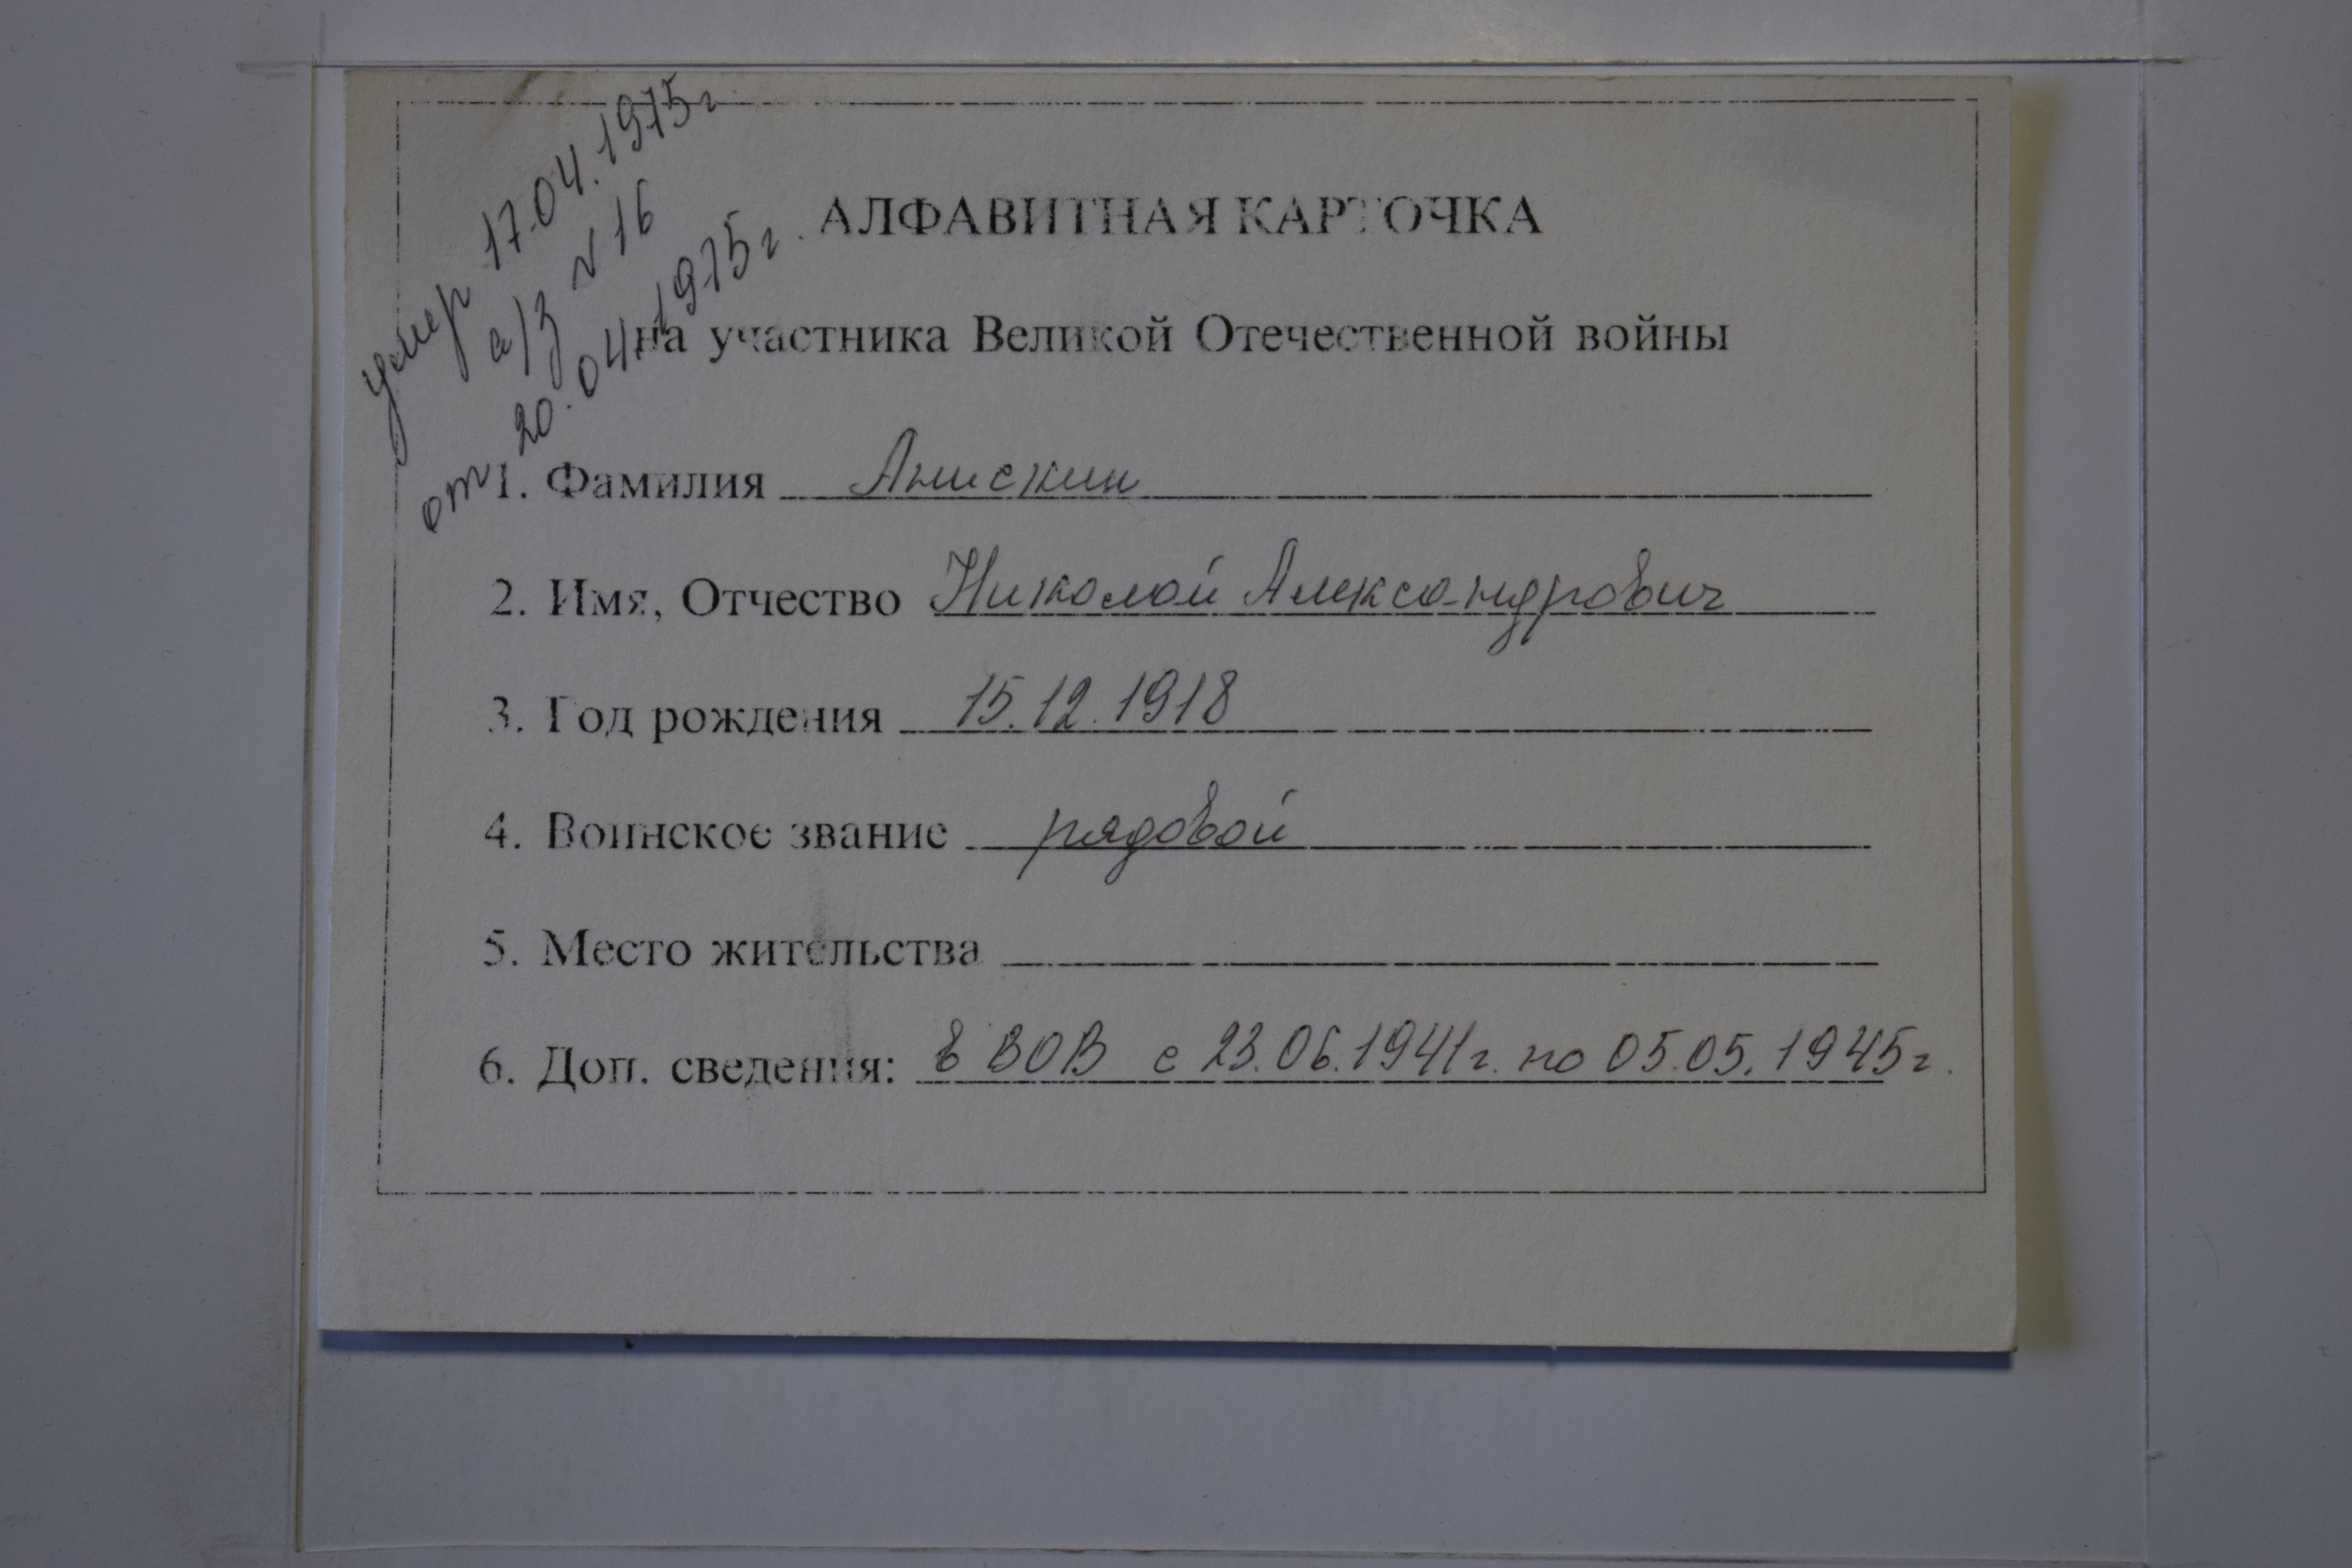 умер 17.04.1975г
а/з № 16
от 20.04.1975г.
АЛФАВИТНАЯ КАРТОЧКА
на участника Великой Отечественной войны
1. Фамилия Анискин
2. Имя, Отчество Николай Александрович
3. Год рождения 15.12.1918
4. Воинское звание рядовой
5. Место жительства
6. Доп. сведения: в ВОВ с 23.06.1941г. по 05.05.1945г.